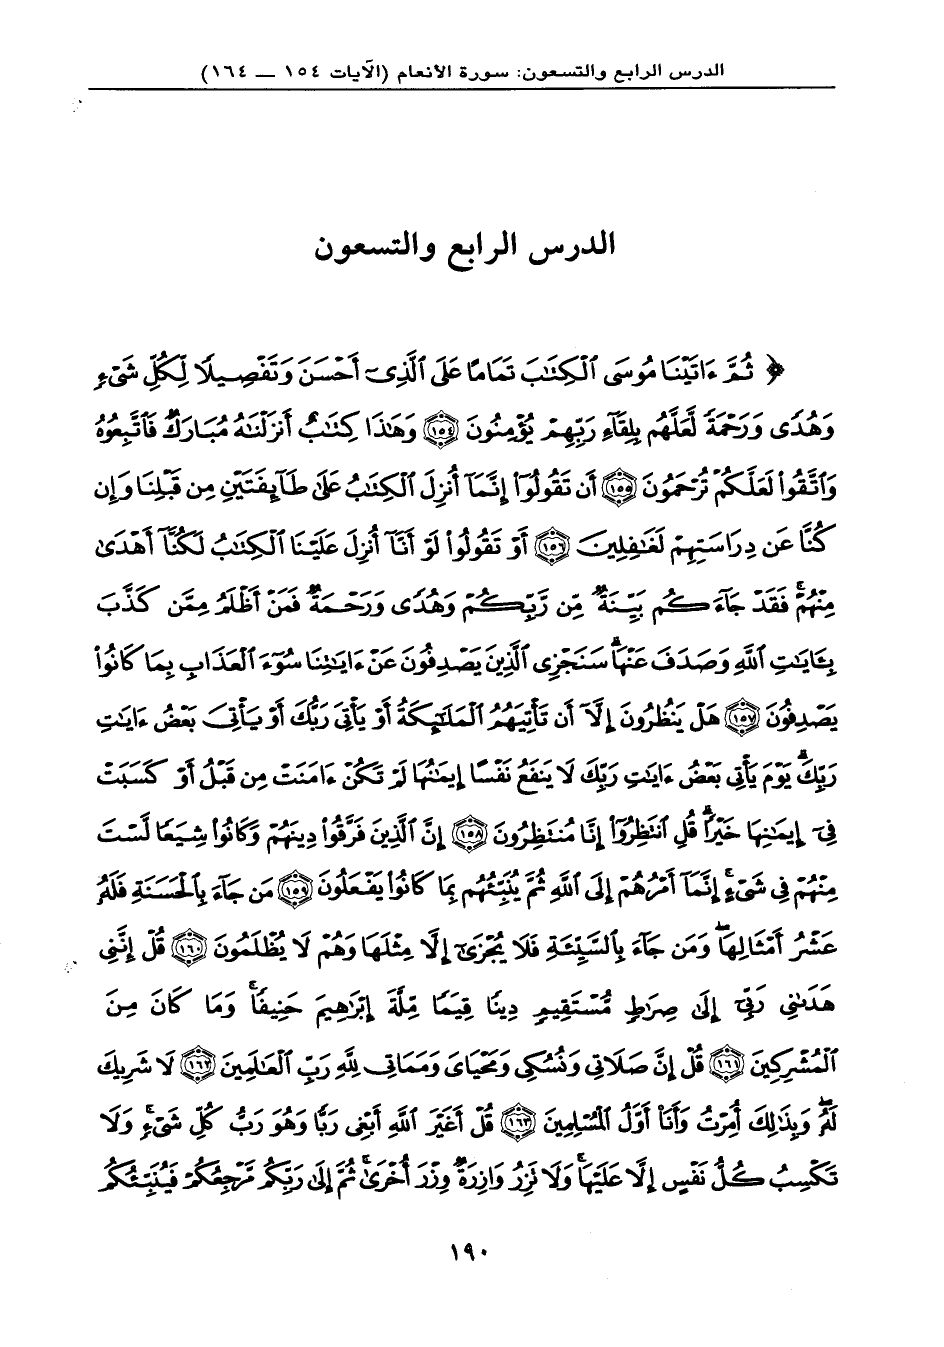 الدرس الرابع والتسعون: سورة الأنعام (الآيات ١٥٤ — ١٦٤)
الدرس الرابع والتسعون
﴿ ثُمَّ ءَاتَيْنَا مُوسَى ٱلْكِتَٰبَ تَمَامًا عَلَى ٱلَّذِىٓ أَحْسَنَ وَتَفْصِيلًا لِّكُلِّ شَىْءٍ
وَهُدًى وَرَحْمَةً لَّعَلَّهُم بِلِقَآءِ رَبِّهِمْ يُؤْمِنُونَ ١٥٤ وَهَٰذَا كِتَٰبٌ أَنزَلْنَٰهُ مُبَارَكٌ فَٱتَّبِعُوهُ
وَٱتَّقُوا۟ لَعَلَّكُمْ تُرْحَمُونَ ١٥٥ أَن تَقُولُوٓا۟ إِنَّمَآ أُنزِلَ ٱلْكِتَٰبُ عَلَىٰ طَآئِفَتَيْنِ مِن قَبْلِنَا وَإِن
كُنَّا عَن دِرَاسَتِهِمْ لَغَٰفِلِينَ ١٥٦ أَوْ تَقُولُوا۟ لَوْ أَنَّآ أُنزِلَ عَلَيْنَا ٱلْكِتَٰبُ لَكُنَّآ أَهْدَىٰ
مِنْهُمْ ۚ فَقَدْ جَآءَكُم بَيِّنَةٌ مِّن رَّبِّكُمْ وَهُدًى وَرَحْمَةٌ ۚ فَمَنْ أَظْلَمُ مِمَّن كَذَّبَ
بِـَٔايَٰتِ ٱللَّهِ وَصَدَفَ عَنْهَا ۗ سَنَجْزِى ٱلَّذِينَ يَصْدِفُونَ عَنْ ءَايَٰتِنَا سُوٓءَ ٱلْعَذَابِ بِمَا كَانُوا۟
يَصْدِفُونَ ١٥٧ هَلْ يَنظُرُونَ إِلَّآ أَن تَأْتِيَهُمُ ٱلْمَلَٰٓئِكَةُ أَوْ يَأْتِىَ رَبُّكَ أَوْ يَأْتِىَ بَعْضُ ءَايَٰتِ
رَبِّكَ ۗ يَوْمَ يَأْتِى بَعْضُ ءَايَٰتِ رَبِّكَ لَا يَنفَعُ نَفْسًا إِيمَٰنُهَا لَمْ تَكُنْ ءَامَنَتْ مِن قَبْلُ أَوْ كَسَبَتْ
فِىٓ إِيمَٰنِهَا خَيْرًا ۗ قُلِ ٱنتَظِرُوٓا۟ إِنَّا مُنتَظِرُونَ ١٥٨ إِنَّ ٱلَّذِينَ فَرَّقُوا۟ دِينَهُمْ وَكَانُوا۟ شِيَعًا لَّسْتَ
مِنْهُمْ فِى شَىْءٍ ۚ إِنَّمَآ أَمْرُهُمْ إِلَى ٱللَّهِ ثُمَّ يُنَبِّئُهُم بِمَا كَانُوا۟ يَفْعَلُونَ ١٥٩ مَن جَآءَ بِٱلْحَسَنَةِ فَلَهُۥ
عَشْرُ أَمْثَالِهَا ۖ وَمَن جَآءَ بِٱلسَّيِّئَةِ فَلَا يُجْزَىٰٓ إِلَّا مِثْلَهَا وَهُمْ لَا يُظْلَمُونَ ١٦٠ قُلْ إِنَّنِى
هَدَىٰنِى رَبِّىٓ إِلَىٰ صِرَٰطٍ مُّسْتَقِيمٍ دِينًا قِيَمًا مِّلَّةَ إِبْرَٰهِيمَ حَنِيفًا ۚ وَمَا كَانَ مِنَ
ٱلْمُشْرِكِينَ ١٦١ قُلْ إِنَّ صَلَاتِى وَنُسُكِى وَمَحْيَاىَ وَمَمَاتِى لِلَّهِ رَبِّ ٱلْعَٰلَمِينَ ١٦٢ لَا شَرِيكَ
لَهُۥ ۖ وَبِذَٰلِكَ أُمِرْتُ وَأَنَا۠ أَوَّلُ ٱلْمُسْلِمِينَ ١٦٣ قُلْ أَغَيْرَ ٱللَّهِ أَبْغِى رَبًّا وَهُوَ رَبُّ كُلِّ شَىْءٍ ۚ وَلَا
تَكْسِبُ كُلُّ نَفْسٍ إِلَّا عَلَيْهَا ۚ وَلَا تَزِرُ وَازِرَةٌ وِزْرَ أُخْرَىٰ ۚ ثُمَّ إِلَىٰ رَبِّكُم مَّرْجِعُكُمْ فَيُنَبِّئُكُم
١٩٠